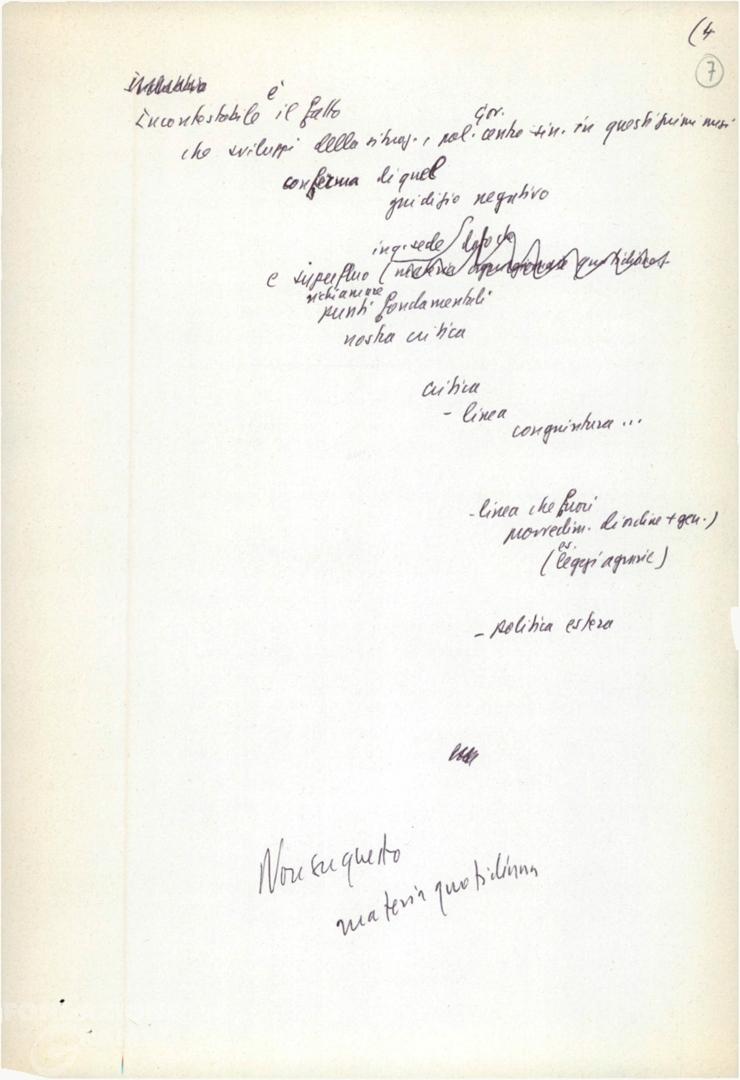 (4
7
è
Incontestabile il fatto
Gov.
che sviluppi della situaz., pol. centro-sin. in questi primi mesi
conferma di quel
giudizio negativo
in q. sede
e superfluo (materia quotidiana
richiamare
punti fondamentali
nostra critica
critica
- linea
congiuntura ...
- linea che fuori
provvedim. di ordine + gen.)
es.
(leggi agrarie)
- politica estera
Non su questo
materia quotidiana